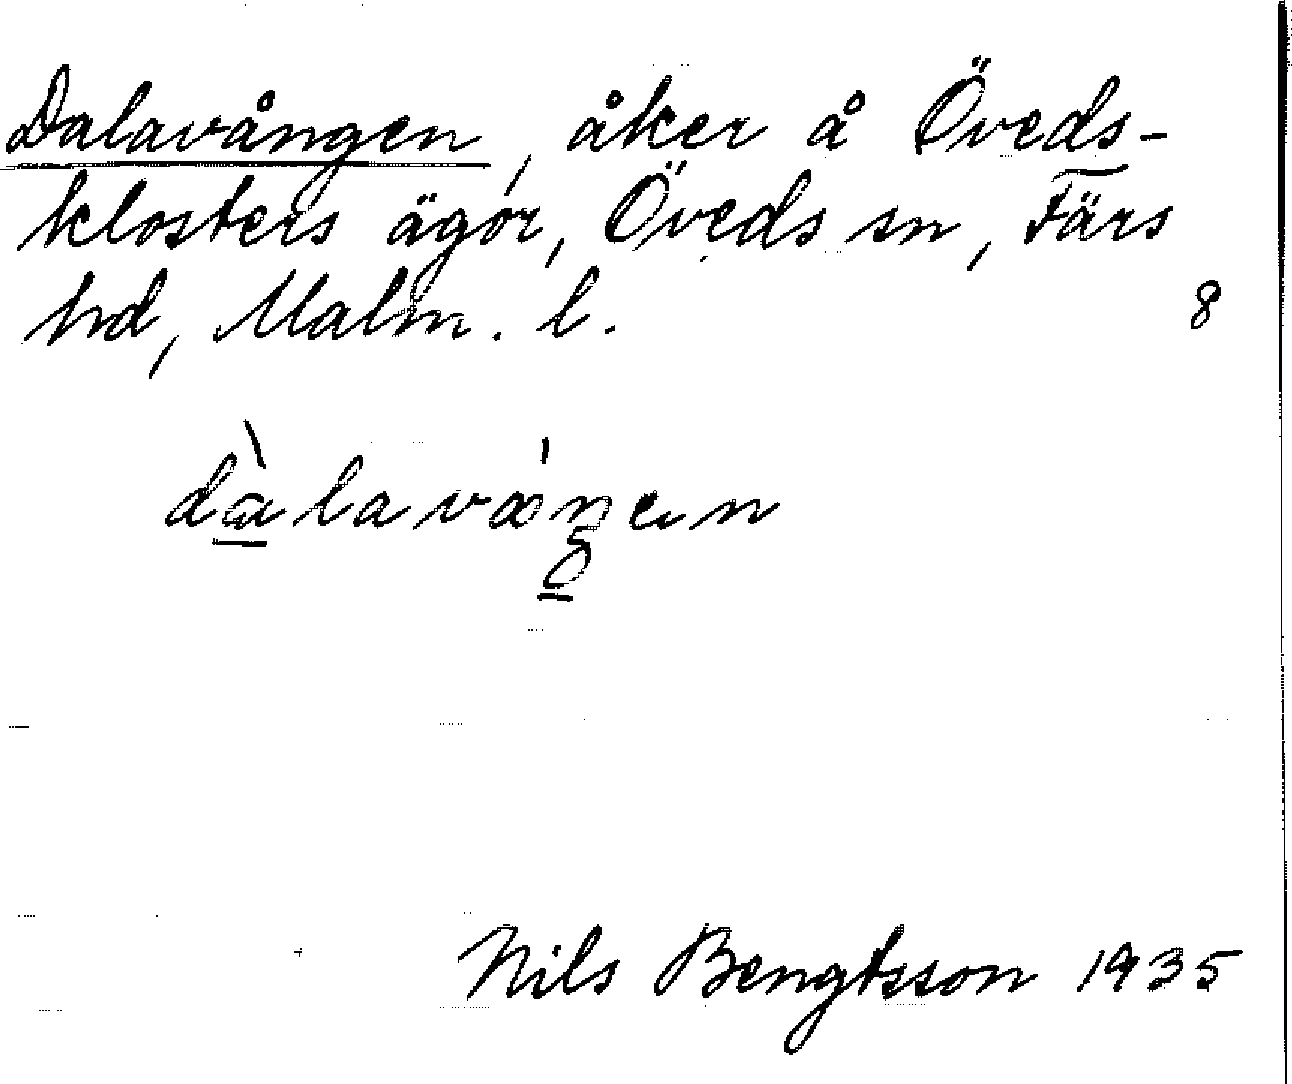 Dalavången, åker å Öveds-
klosters ägor, Öveds sn, Färs
hd, Malm. l.
8
Nils Bengtsson 1935